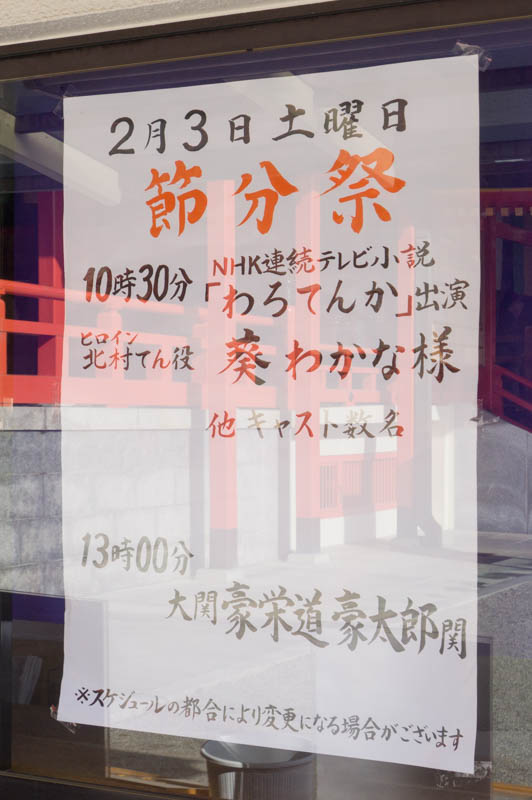 2月3日土曜日
節分祭
10時30分 NHK連続テレビ小説
「わろてんか」出演
ヒロイン
北村てん役 葵わかな様
他キャスト数名
13時00分
大関豪栄道豪太郎関
※スケジュールの都合により変更になる場合がございます